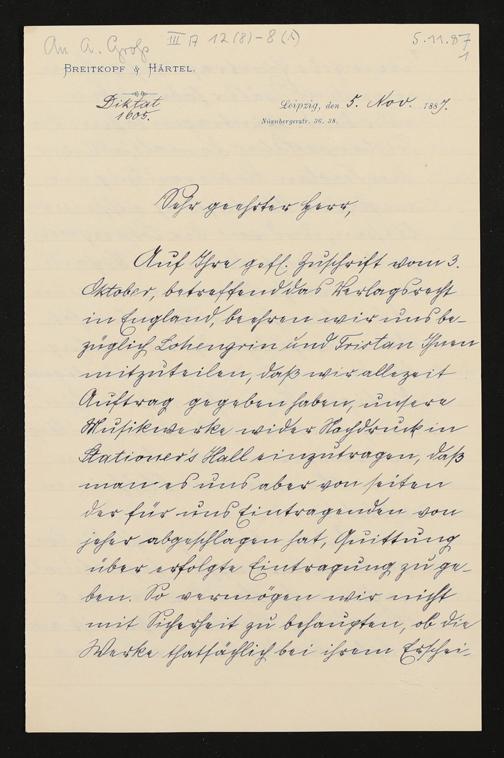 An A. Groß III A 12 (8)-8 (1) 5.11.87
1
BREITKOPF & HÄRTEL.
Diktat
1605.
Leipzig, den 5. Nov. 1887.
Nürnbergerstr. 36. 38.
Sehr geehrter Herr,
Auf Ihre gefl. Zuschrift vom 3.
Oktober, betreffend das Verlagsrecht
in England, beehren wir uns be-
züglich Lohengrin und Tristan Ihnen
mitzuteilen, daß wir allezeit
Auftrag gegeben haben, unsere
Musikwerke wider Nachdruck in
Stationer's Hall einzutragen, daß
man es uns aber von seiten
der für uns Eintragenden von
jeher abgeschlagen hat, Quittung
über erfolgte Eintragung zu ge-
ben. So vermögen wir nicht
mit Sicherheit zu behaupten, ob die
Werke thatsächlich bei ihrem Erschei-